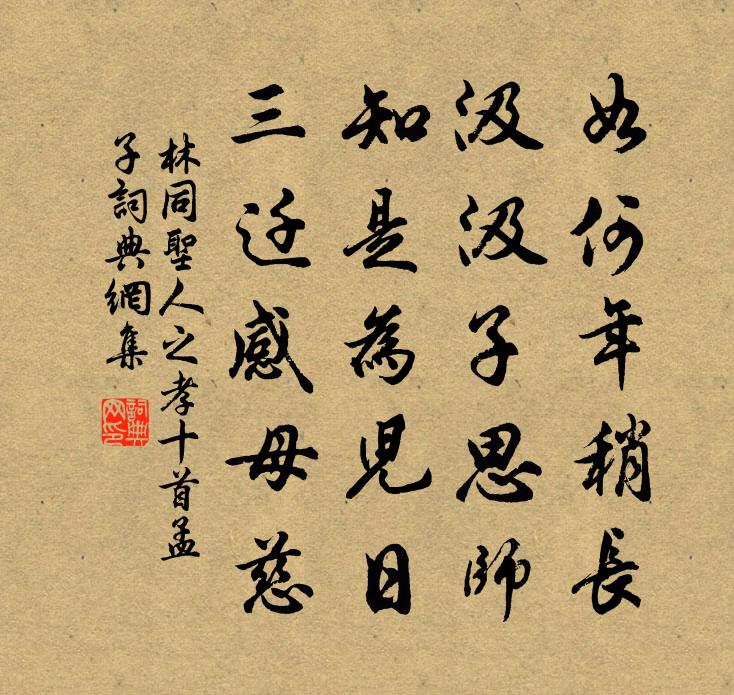 如何年稍長
汲汲子思師
知是為兒日
三迁感母慈
林同聖人之孝十首孟
子詞典網集
詞典网印